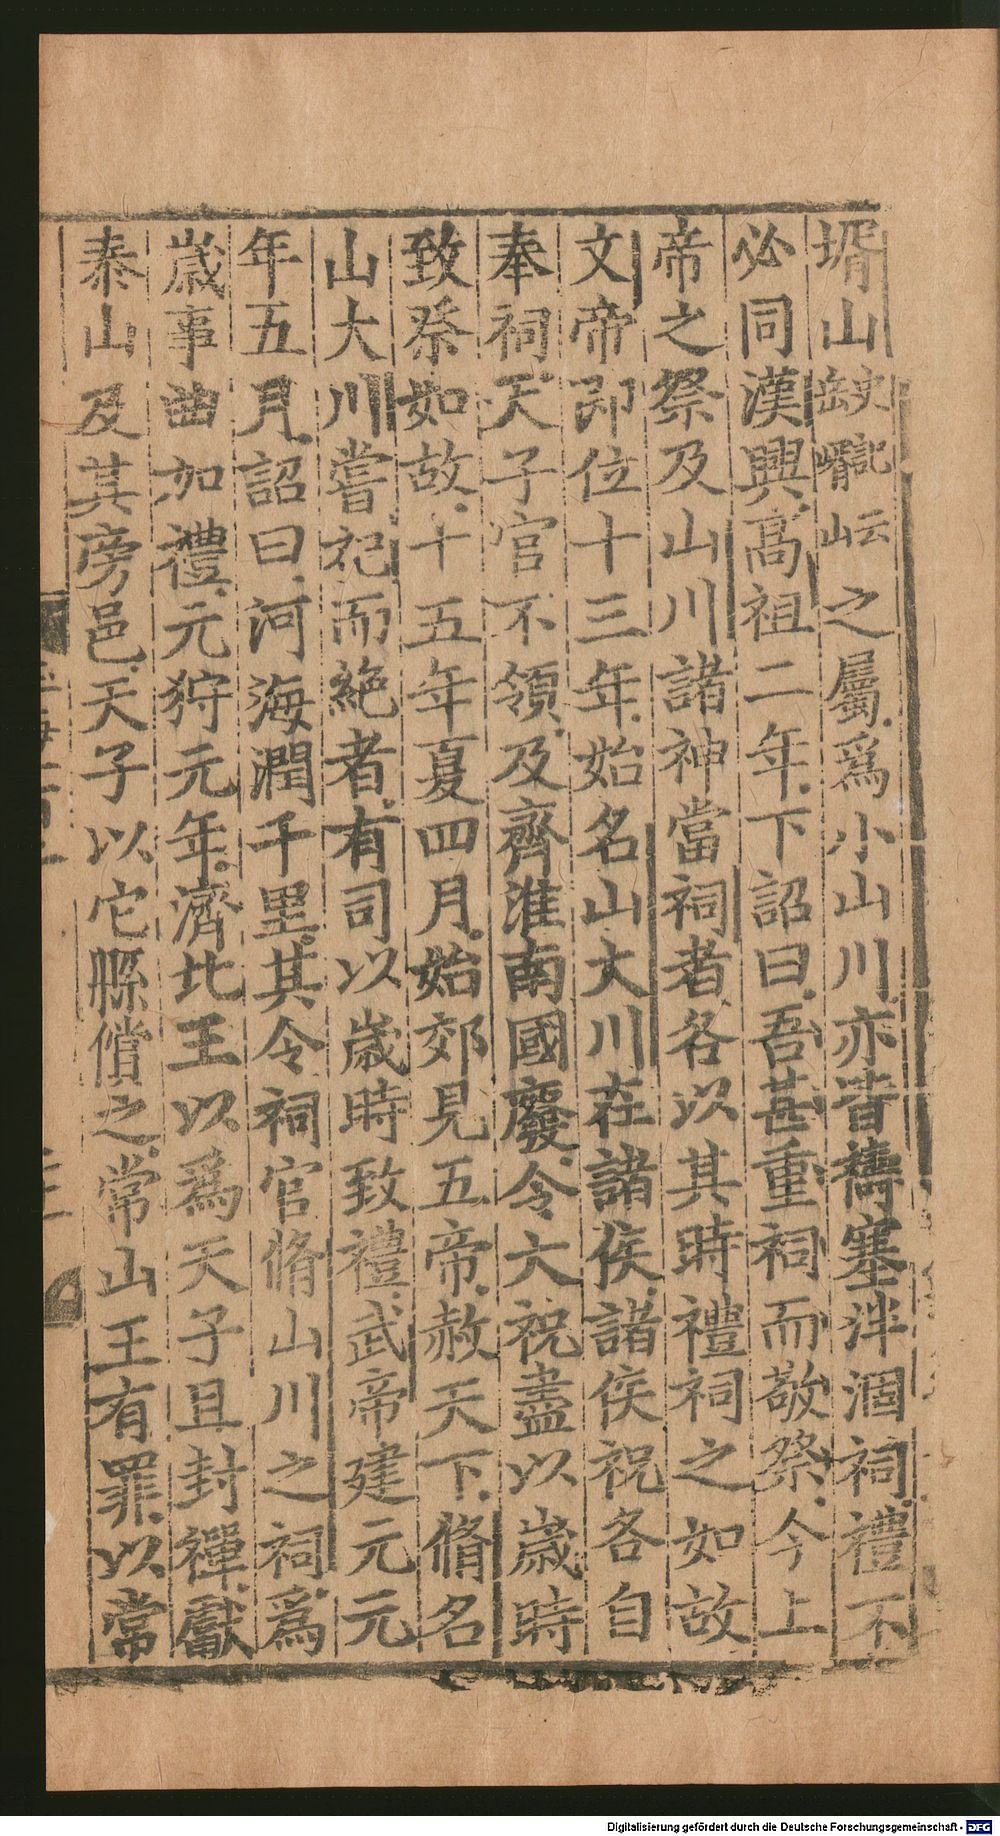 壻山嶽㟴之屬爲小山川亦皆禱塞泮涸祠禮不
必同漢興高祖二年下詔曰吾甚重祠而敬祭今上
帝之祭及山川諸神當祠者各以其時禮祠之如故
文帝即位十三年始名山大川在諸侯諸侯祝各自
奉祠天子官不領及齊淮南國廢令大祝盡以歲時
致祭如故十五年夏四月始郊見五帝赦天下脩名
山大川嘗祀而絕者有司以歲時致禮武帝建元元
年五月詔曰河海潤千里其令祠官脩山川之祠爲
歲事曲加禮元狩元年濟北王以爲天子且封禪獻
泰山及其旁邑天子以它縣償之常山王有罪以常
Digitalisierung gefördert durch die Deutsche Forschungsgemeinschaft - DFG